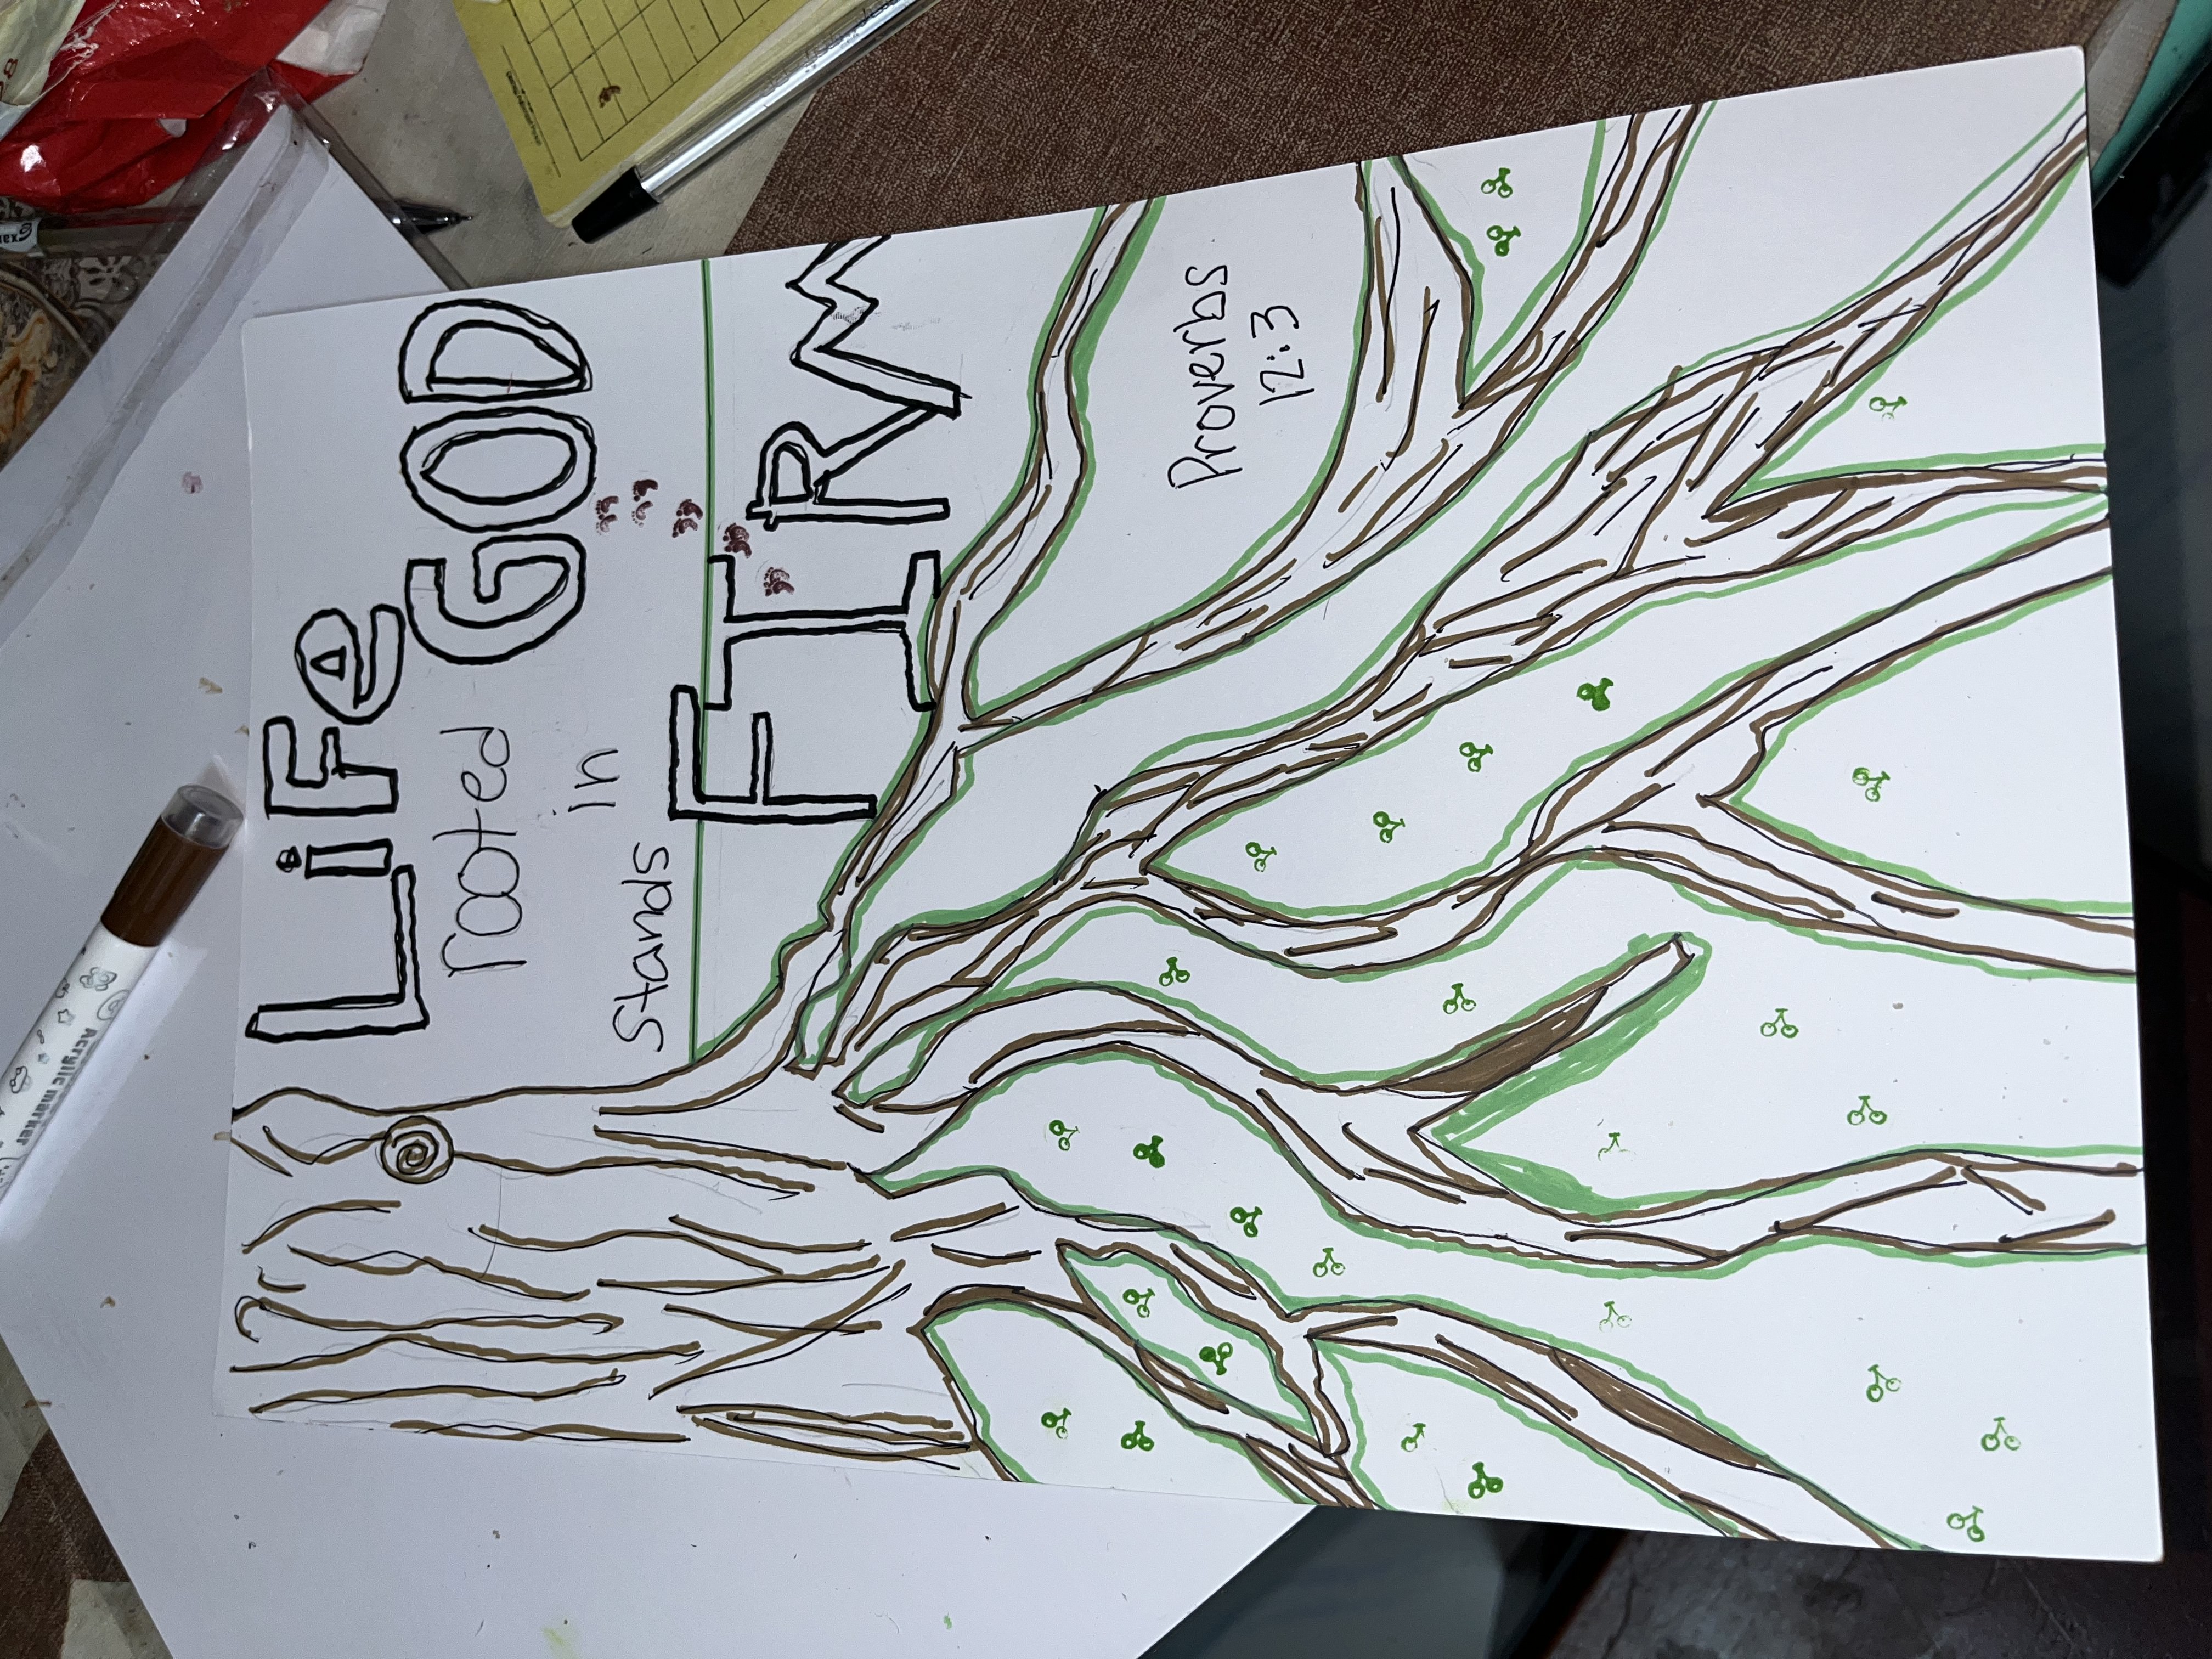 Acrylic marker
LiFe
rooted GOD
in
Stands
FIRM
Proverbs
12:3